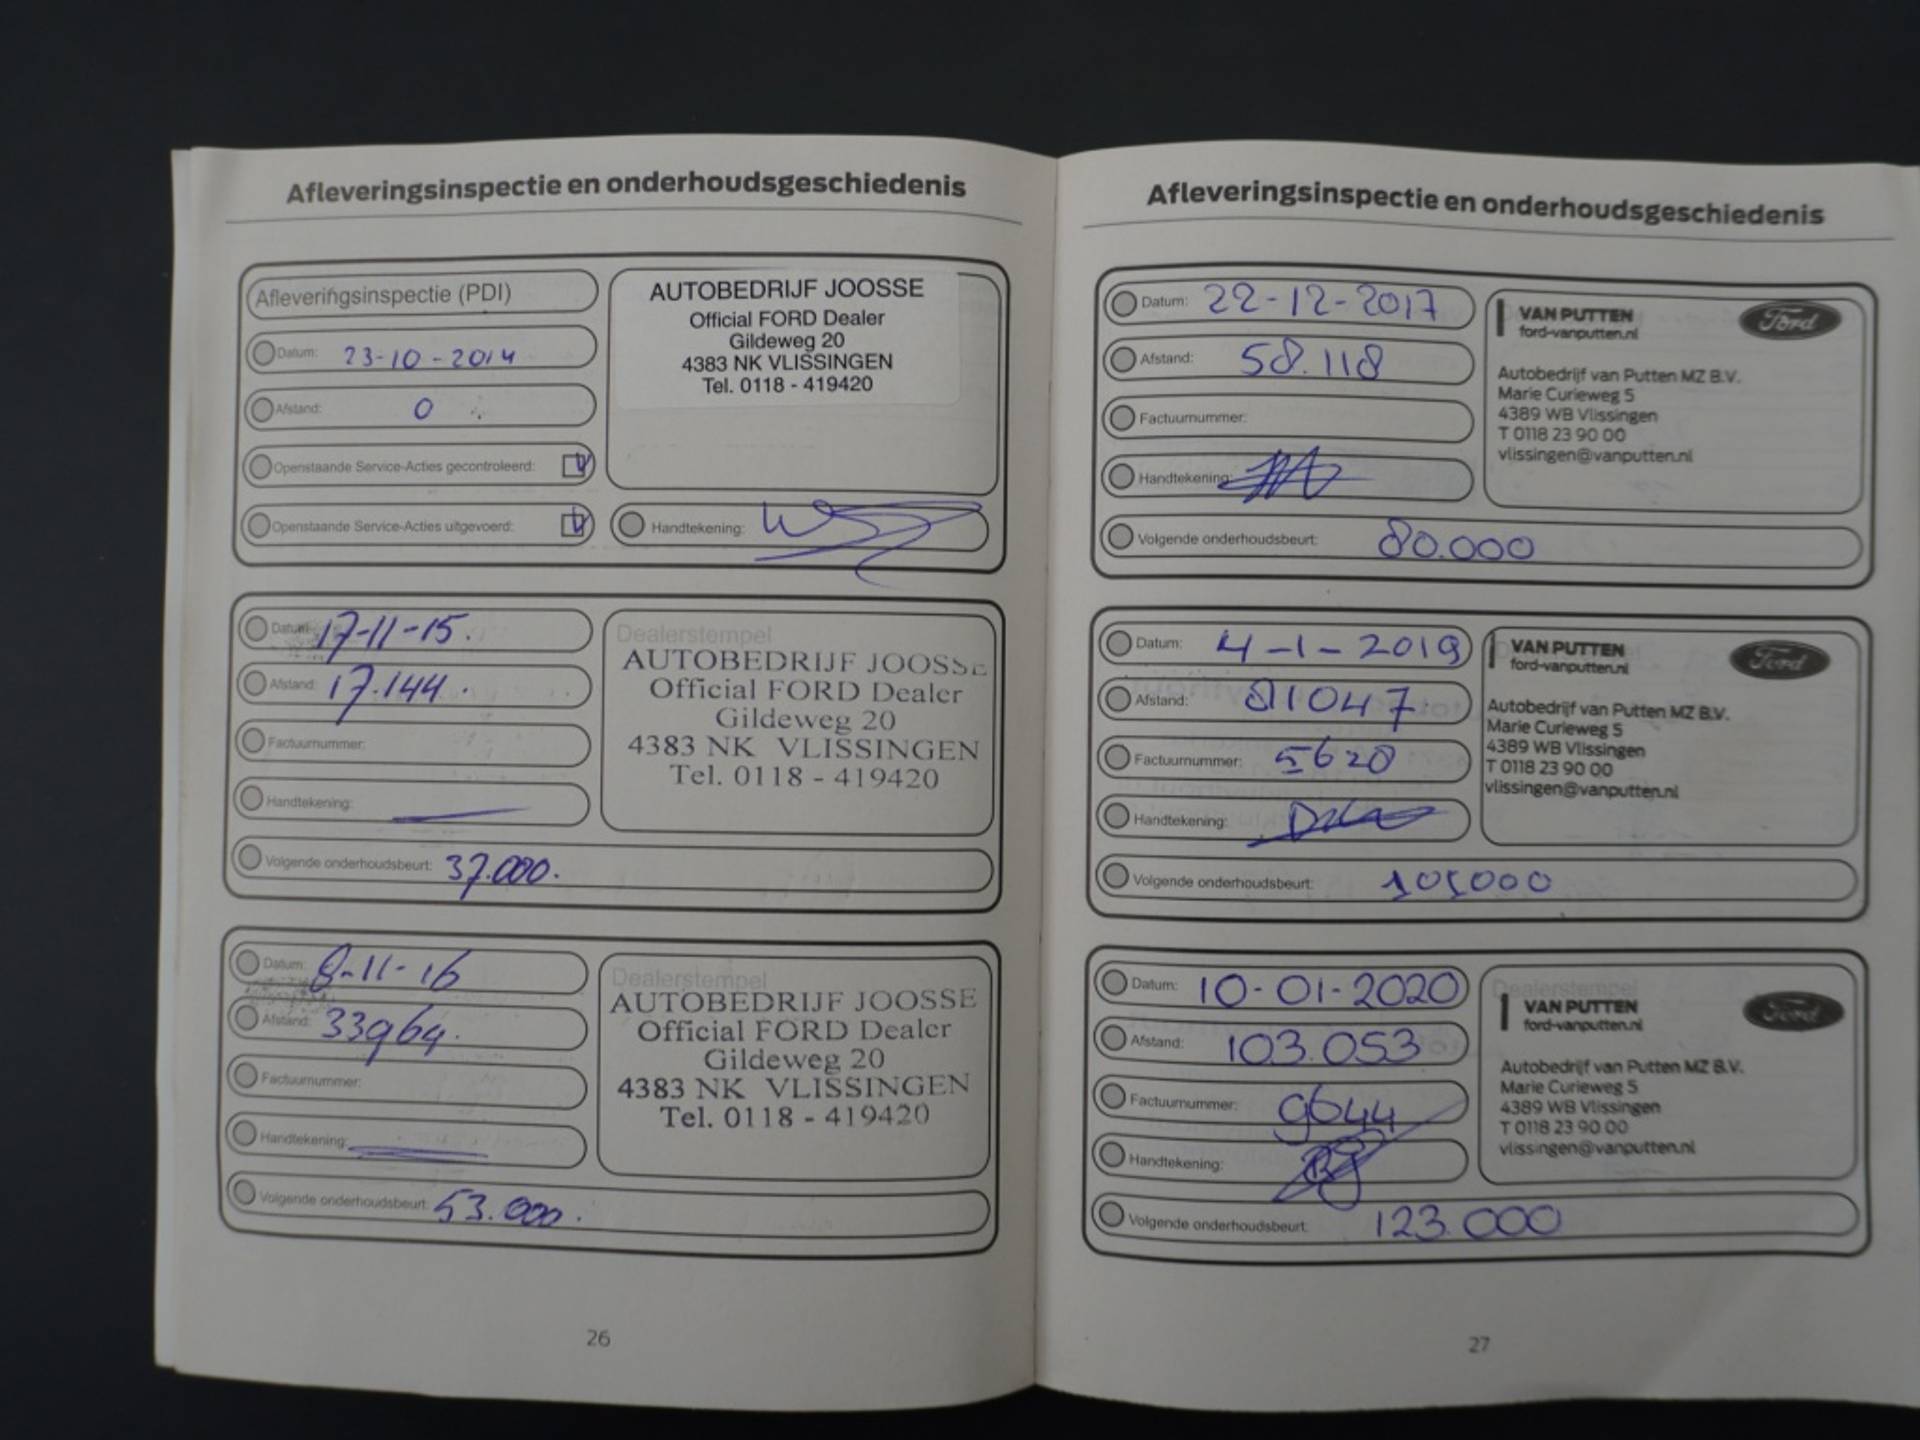 Afleveringsinspectie en onderhoudsgeschiedenis
Afleveringsinspectie (PDI)
Datum: 23-10-2014
Afstand: 0
Openstaande Service-Acties gecontroleerd:
Openstaande Service-Acties uitgevoerd:
AUTOBEDRIJF JOOSSE
Official FORD Dealer
Gildeweg 20
4383 NK VLISSINGEN
Tel. 0118 - 419420
Handtekening:
Datum: 17-11-15.
Afstand: 17.144.
Factuurnummer:
Handtekening:
Volgende onderhoudsbeurt: 37.000.
Dealerstempel
AUTOBEDRIJF JOOSSE
Official FORD Dealer
Gildeweg 20
4383 NK VLISSINGEN
Tel. 0118 - 419420
Datum: 8-11-16
Afstand: 33964.
Factuurnummer:
Handtekening:
Volgende onderhoudsbeurt: 53.000.
Dealerstempel
AUTOBEDRIJF JOOSSE
Official FORD Dealer
Gildeweg 20
4383 NK VLISSINGEN
Tel. 0118 - 419420
26
Afleveringsinspectie en onderhoudsgeschiedenis
Datum: 22-12-2017
Afstand: 58.118
Factuurnummer:
Handtekening:
Volgende onderhoudsbeurt: 80.000
VAN PUTTEN
ford-vanputten.nl
Ford
Autobedrijf van Putten MZ B.V.
Marie Curieweg 5
4389 WB Vlissingen
T 0118 23 90 00
vlissingen@vanputten.nl
Datum: 4-1-2019
Afstand: 81047
Factuurnummer: 5620
Handtekening:
Volgende onderhoudsbeurt: 101000
VAN PUTTEN
ford-vanputten.nl
Ford
Autobedrijf van Putten MZ B.V.
Marie Curieweg 5
4389 WB Vlissingen
T 0118 23 90 00
vlissingen@vanputten.nl
Datum: 10-01-2020
Afstand: 103.053
Factuurnummer: 9644
Handtekening:
Volgende onderhoudsbeurt: 123.000
Dealerstempel
VAN PUTTEN
ford-vanputten.nl
Ford
Autobedrijf van Putten MZ B.V.
Marie Curieweg 5
4389 WB Vlissingen
T 0118 23 90 00
vlissingen@vanputten.nl
27